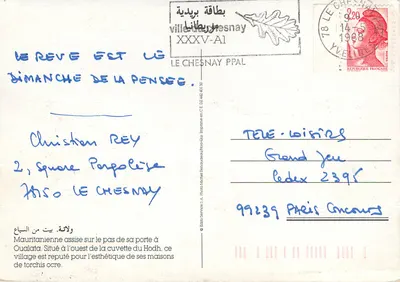 بطاقة بريدية
موريطانيا
ville du Chesnay
XXXV-AI
LE CHESNAY PPAL
78 LE CHESNAY
14-
1988
YVELINES
2,20
LE REVE EST LE
DIMANCHE DE LA PENSEE.
Christian REY
2, Square Pergolèse
78150 LE CHESNAY
TELE-LOISIRS
Grand Jeu
Cedex 2395
99239 PARIS CONCOURS
ولاتة. بيت من السباخ
Mauritanienne assise sur le pas de sa porte à
Oualata. Situé à l'ouest de la cuvette du Hodh, ce
village est réputé pour l'esthétique de ses maisons
de torchis ocre.